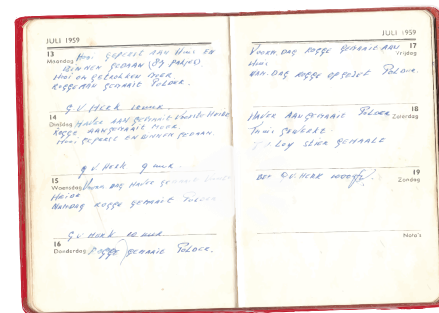 JULI 1959
13
Maandag Hooi geperst aan Huis En
Binnen gedaan (89 pakjes).
Hooi omgetrokken Moer
Rogge aangemaait Polder.
G.v. Herk 10 uur
14
Dinsdag Haver aangemaait Voorste Heide
Rogge aangemaait Moer.
Hooi geperst en binnen gedaan.
G v Herk 9 uur
15
Woensdag Voorm. dag Haver gemaait
Heide
Namdag Rogge gemaait Polder
G.v Herk 10 uur
16
Donderdag Rogge gemaait Polder.
JULI 1959
17
Vrijdag
Voorm. dag Rogge gemaait aan
Huis
Nam. dag Rogge opgezet Polder.
18
Zaterdag
Haver aangemaait Polder
Thuis gewerkt
gemaait
19
Zondag
G.v. Herk
Nota's